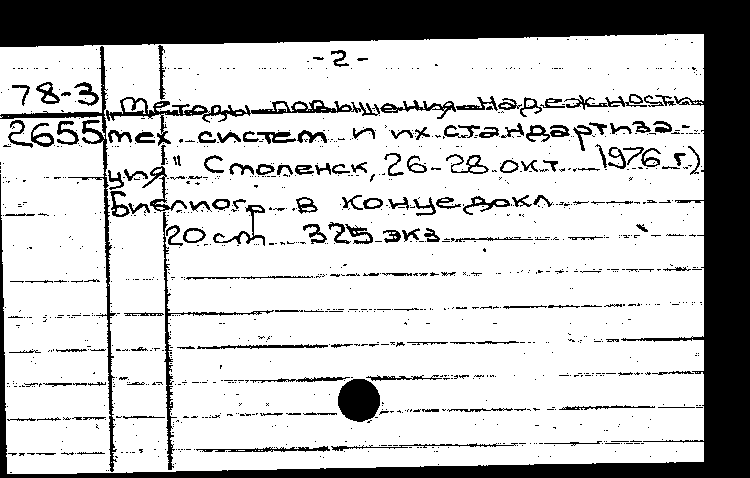 - 2 -
78-3 „Методы повышения надежности
2655 тех. систем и их стандартиза-
ция" Смоленск, 26-28 окт. 1976 г.)
Библиогр в конце докл
20 cm 325 экз